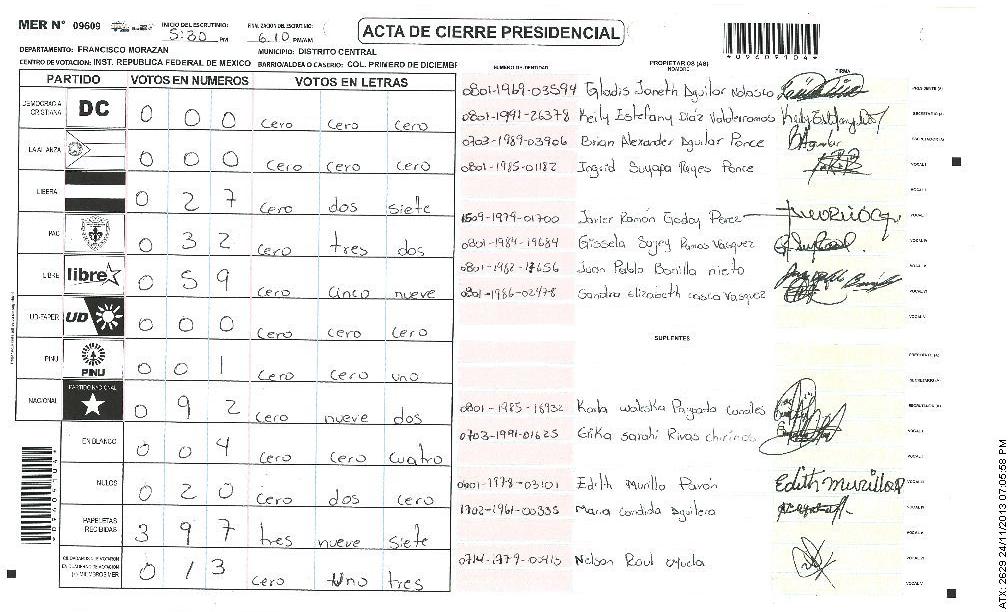 MER N° 09609
INICIO DEL ESCRUTINIO: 5:30 PM
FINALIZACION DEL ESCRUTINIO: 6:10 PM/AM
ACTA DE CIERRE PRESIDENCIAL
*09609104*
DEPARTAMENTO: FRANCISCO MORAZAN
MUNICIPIO: DISTRITO CENTRAL
CENTRO DE VOTACION: INST. REPUBLICA FEDERAL DE MEXICO
BARRIO/ALDEA O CASERIO: COL. PRIMERO DE DICIEMBR
PARTIDO VOTOS EN NUMEROS VOTOS EN LETRAS
DEMOCRACIA CRISTIANA DC 0 0 0 cero cero cero
LA ALIANZA 0 0 0 cero cero cero
LIBERAL 0 2 7 cero dos siete
PAC 0 3 2 cero tres dos
LIBRE libre 0 5 9 cero cinco nueve
UD-FAPER UD 0 0 0 cero cero cero
PINU PNU 0 0 1 cero cero uno
NACIONAL PARTIDO NACIONAL 0 9 2 cero nueve dos
EN BLANCO 0 0 4 cero cero cuatro
NULOS 0 2 0 cero dos cero
PAPELETAS RECIBIDAS 3 9 7 tres nueve siete
0 1 3 cero uno tres
NUMERO DE IDENTIDAD PROPIETARIOS (AS) NOMBRE FIRMA
0801-1969-03594 Gladis Janeth Aguilar Nolasco PRESIDENTE (A)
0801-1991-26378 Keily Estefany Diaz Valderramos SECRETARIO (A)
0703-1989-03906 Brian Alexander Aguilar Ponce BAguilar ESCRUTADOR (A)
0801-1985-01182 Ingrid Suyapa Reyes Ponce VOCAL I
VOCAL II
1509-1979-01700 Javier Ramón Godoy Perez
0801-1984-19684 Gissela Sujey Ramos Vasquez VOCAL IV
0801-1982-17656 Juan Pablo Bonilla nieto VOCAL V
0801-1986-02478 Sandra Elizabeth casco Vasquez VOCAL VI
SUPLENTES
PRESIDENTE (A)
SECRETARIO (A)
0801-1985-16932 Karla waleska Canales ESCRUTADOR (A)
0703-1991-01625 Erika sarahi Rivas chirinos VOCAL I
VOCAL II
0801-1978-03101 Edith Murillo Pavón Edith Murillo P
1702-1961-00335 Maria Candida Aguilera VOCAL IV
VOCAL V
0714-1979-00415 Nelson Raul VOCAL VI
*09609104*
ATX: 2629 24/11/2013 07:05:58 PM